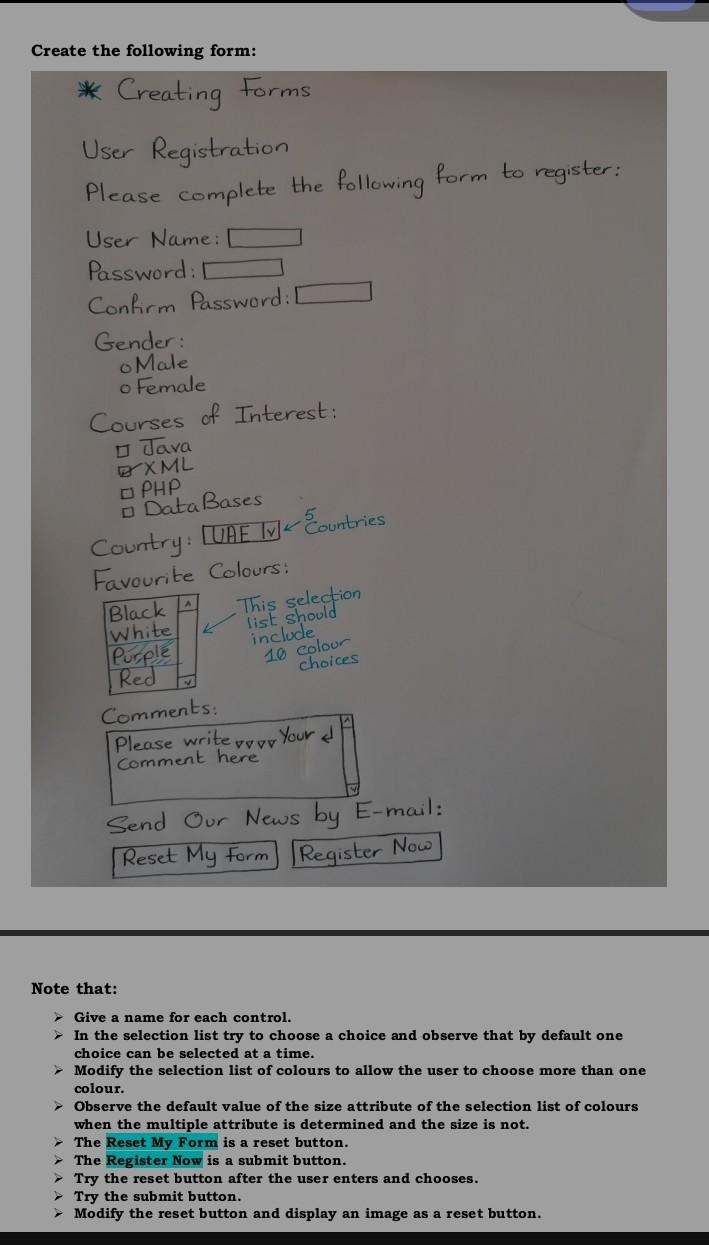 Create the following form:
* Creating Forms
User Registration
Please complete the following form to register:
User Name:
Password:
Confirm Password:
Gender:
Male
Female
Courses of Interest:
Java
XML
PHP
DataBases
Country: UAE
5
Countries
Favourite Colours:
Black
White
Purple
Red
This selection
list should
include
10 colour
choices
Comments:
Please write Your
Comment here
Send Our News by E-mail:
Reset My Form Register Now
Note that:
➢ Give a name for each control.
➢ In the selection list try to choose a choice and observe that by default one
choice can be selected at a time.
➢ Modify the selection list of colours to allow the user to choose more than one
colour.
➢ Observe the default value of the size attribute of the selection list of colours
when the multiple attribute is determined and the size is not.
➢ The Reset My Form is a reset button.
➢ The Register Now is a submit button.
➢ Try the reset button after the user enters and chooses.
➢ Try the submit button.
➢ Modify the reset button and display an image as a reset button.